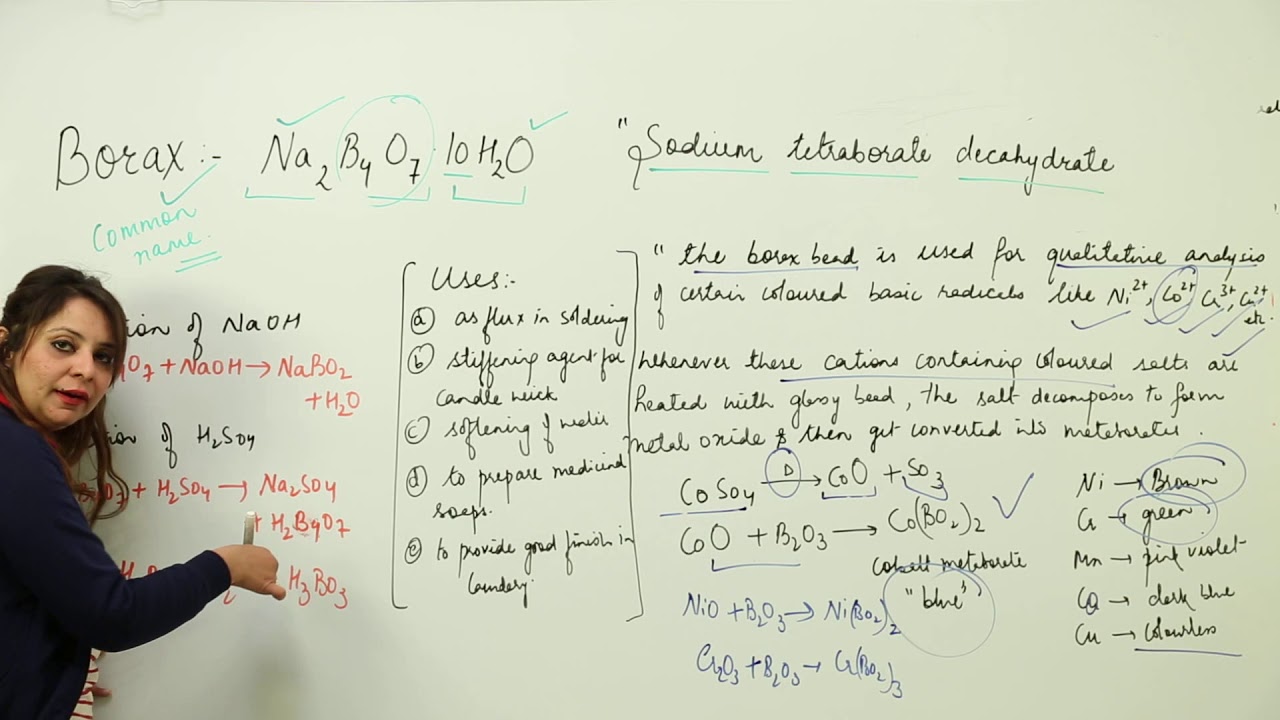 Borax :- Na2B4O7 . 10H2O
"Sodium tetraborate decahydrate
Common
name.
tion of NaOH
O7 + NaOH → NaBO2
+ H2O
tion of H2SO4
O7 + H2SO4 → Na2SO4
+ H2B4O7
H3BO3
Uses:-
(a) as flux in soldering
(b) stiffening agent for
candle wick
(c) softening of water
(d) to prepare medicinal
soaps.
(e) to provide good finish in
laundry.
" the borax bead is used for qualitative analysis
of certain coloured basic radicals like Ni2+, Co2+ Cr3+, Cu2+
etc.
Whenever these cations containing coloured salts are
heated with glassy bead, the salt decomposes to form
metal oxide & then get converted into metaborates.
CoSO4 Δ→ CoO + SO3
CoO + B2O3 → Co(BO2)2
cobalt metaborate
"blue"
NiO + B2O3 → Ni(BO2)2
Cr2O3 + B2O3 → Cr(BO2)3
Ni → Brown
Cr → green
Mn → pink violet
Co → dark blue
Cu → colourless